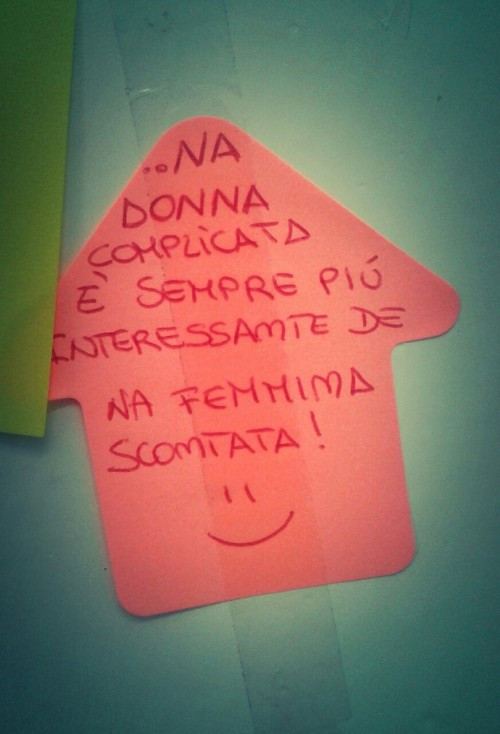 ..NA
DONNA
COMPLICATA
É SEMPRE PIÚ
INTERESSANTE DE
NA FEMMINA
SCONTATA!